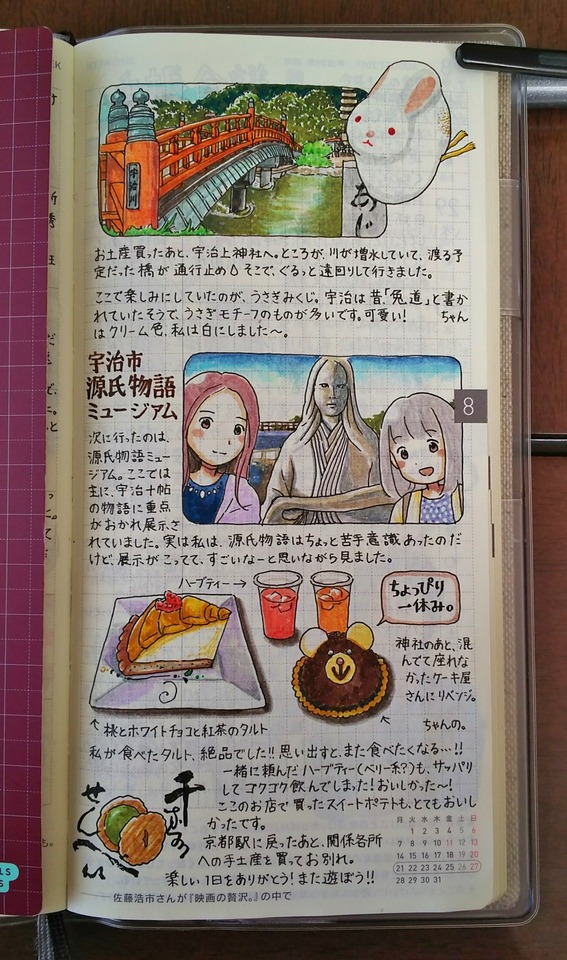 宇治川
あじ
お土産買ったあと、宇治上神社へ。ところが、川が増水していて、渡る予
定だった橋が通行止め そこで、ぐるっと遠回りして行きました。
ここで楽しみにしていたのが、うさぎみくじ。宇治は昔、「兎道」と書か
れていたそうで、うさぎモチーフのものが多いです。可愛い! ちゃん
はクリーム色、私は白にしました〜。
宇治市
源氏物語
ミュージアム
次に行ったのは、
源氏物語ミュー
ジアム。ここでは
主に、宇治十帖
の物語に重点
がおかれ展示さ
れていました。実は私は、源氏物語はちょっと苦手意識あったのだ
けど、展示がこってて、すごいなーと思いながら見ました。
8
ハーブティー→
ちょっぴり
一休み。
神社のあと、混
んでて座れな
かったケーキ屋
さんにリベンジ。
桃とホワイトチョコと紅茶のタルト
ちゃんの。
私が食べたタルト、絶品でした!!思い出すと、また食べたくなる…!!
一緒に頼んだハーブティー(ベリー系?)も、サッパリ
してコクゴク飲んでしまった!おいしかった〜!
ここのお店で買ったスイートポテトも、とてもおいし
かったです。
京都駅に戻ったあと、関係各所
への手土産を買ってお別れ。
楽しい1日をありがとう!また遊ぼう!!
せんべい
月 火 水 木 金 土 日
1 2 3 4 5 6
7 8 9 10 11 12 13
14 15 16 17 18 19 20
21 22 23 24 25 26 27
28 29 30 31
佐藤浩市さんが『映画の贅沢。』の中で